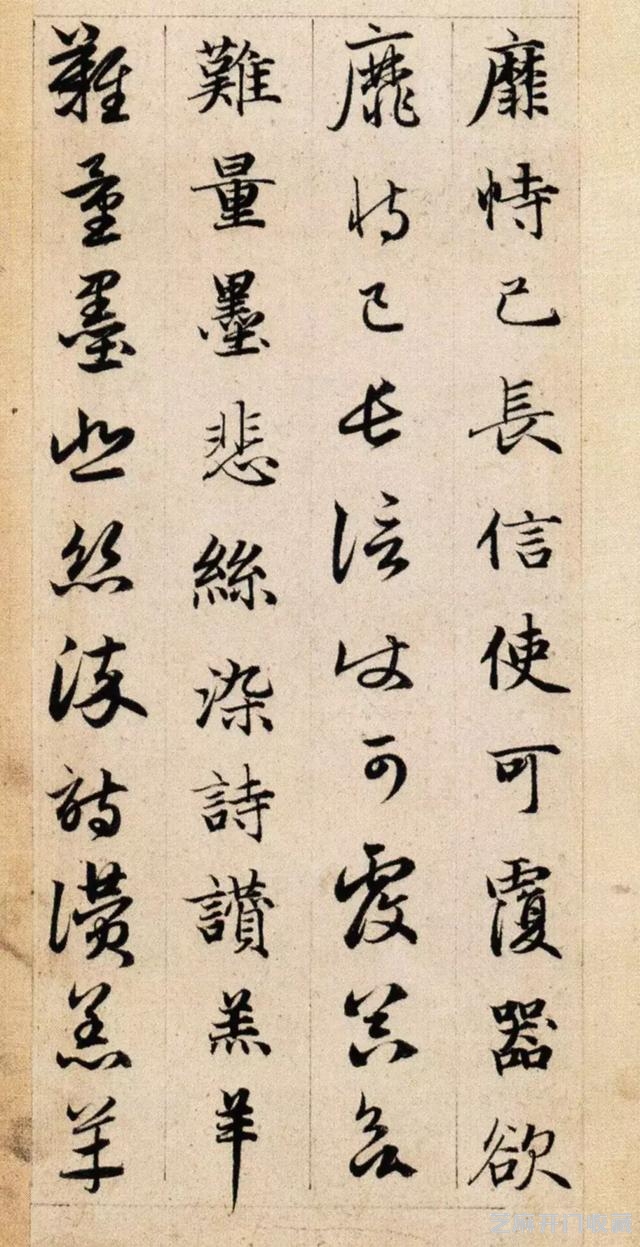 靡恃己長信使可覆器欲
靡恃己長信使可覆器欲
難量墨悲絲染詩讚羔羊
難量墨悲絲染詩讚羔羊
芝麻开门收藏